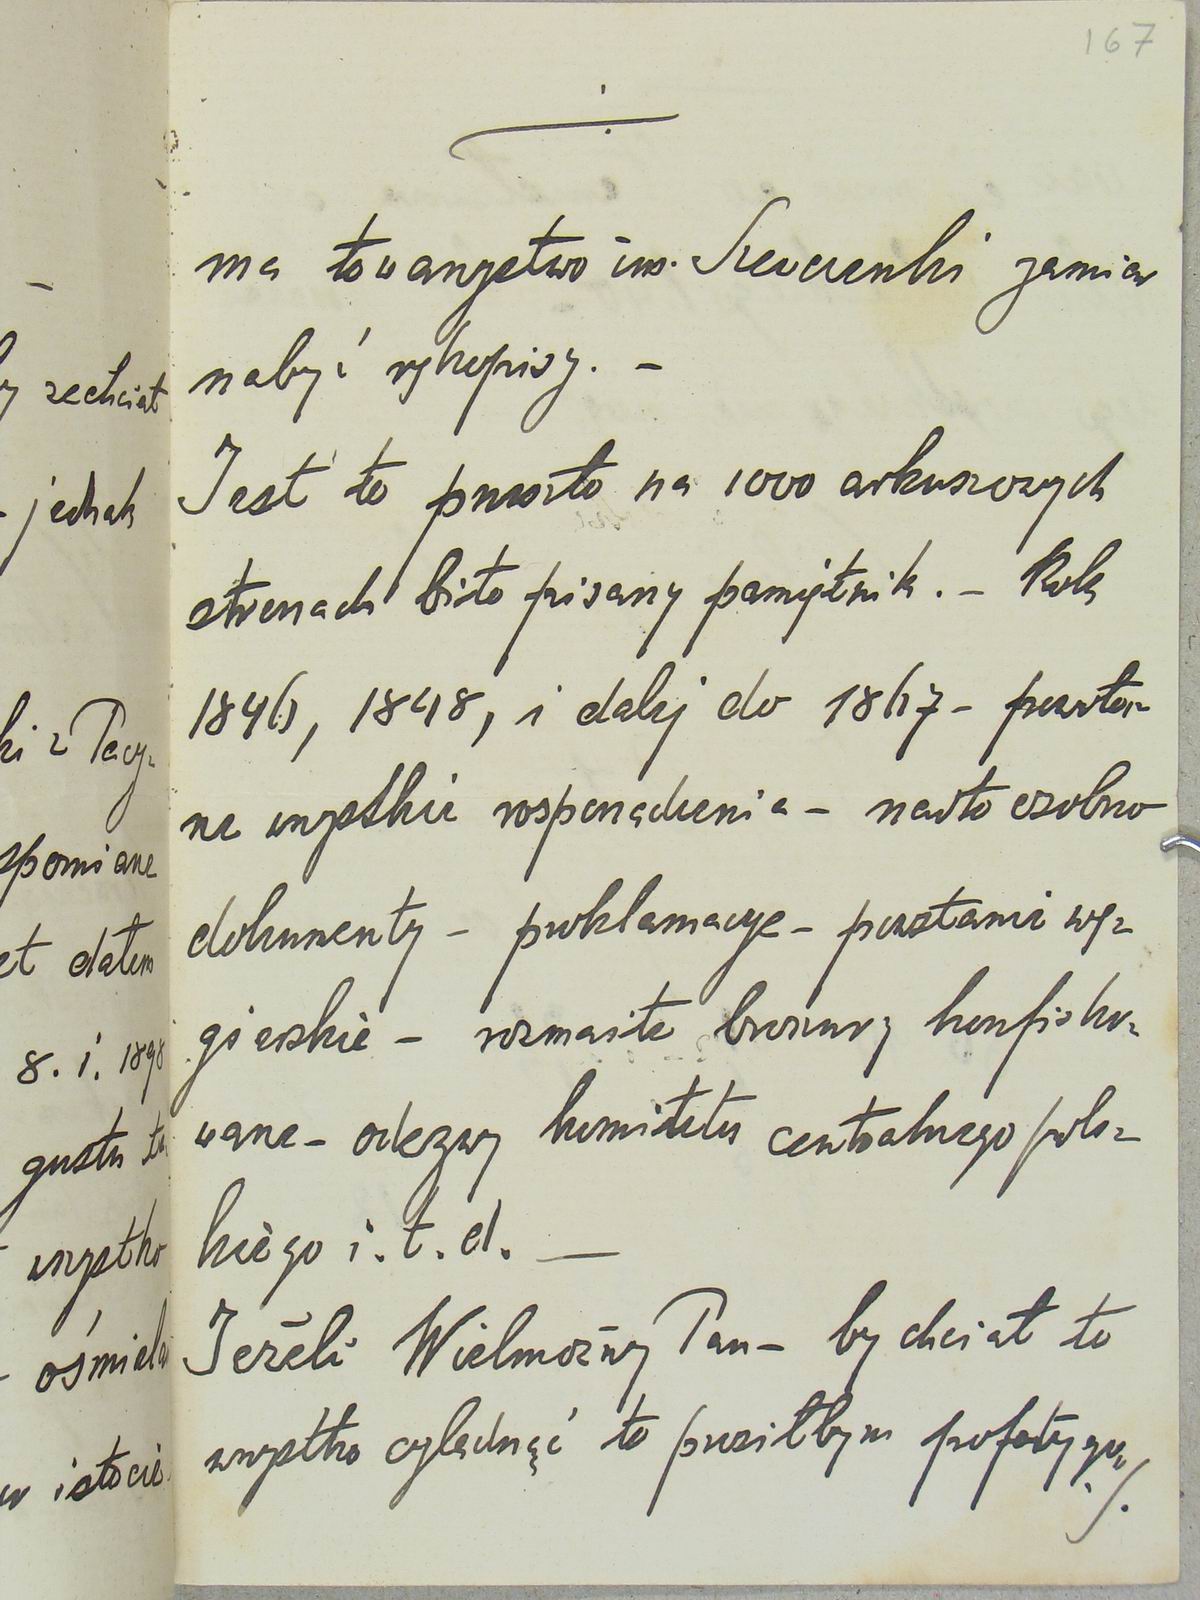 167
ma towarzystwo im. Szewczenki zamiar
nabyć rękopisy. –
Jest to przeszło na 1000 arkuszowych
stronach bito pisany pamiętnik. – Rok
1846, 1848, i dalej do 1867 –
ne wszystkie rosporządzenia – nadto osobno
dokumenty – proklamacye – powstanie wę-
gierskie – rozmaite broszury konfisko-
wane – odezwy komitetu centralnego pols-
kiego i. t. d. —
Jeżeli Wielmożny Pan – by chciał to
wszystko oglądnąć to prosiłbym pofatygo-
zechciał
– jednak
ki z Pacy-
spomiane
et dałem
8. i. 1898
gustu
wszystko
– ośmiela
w istocie